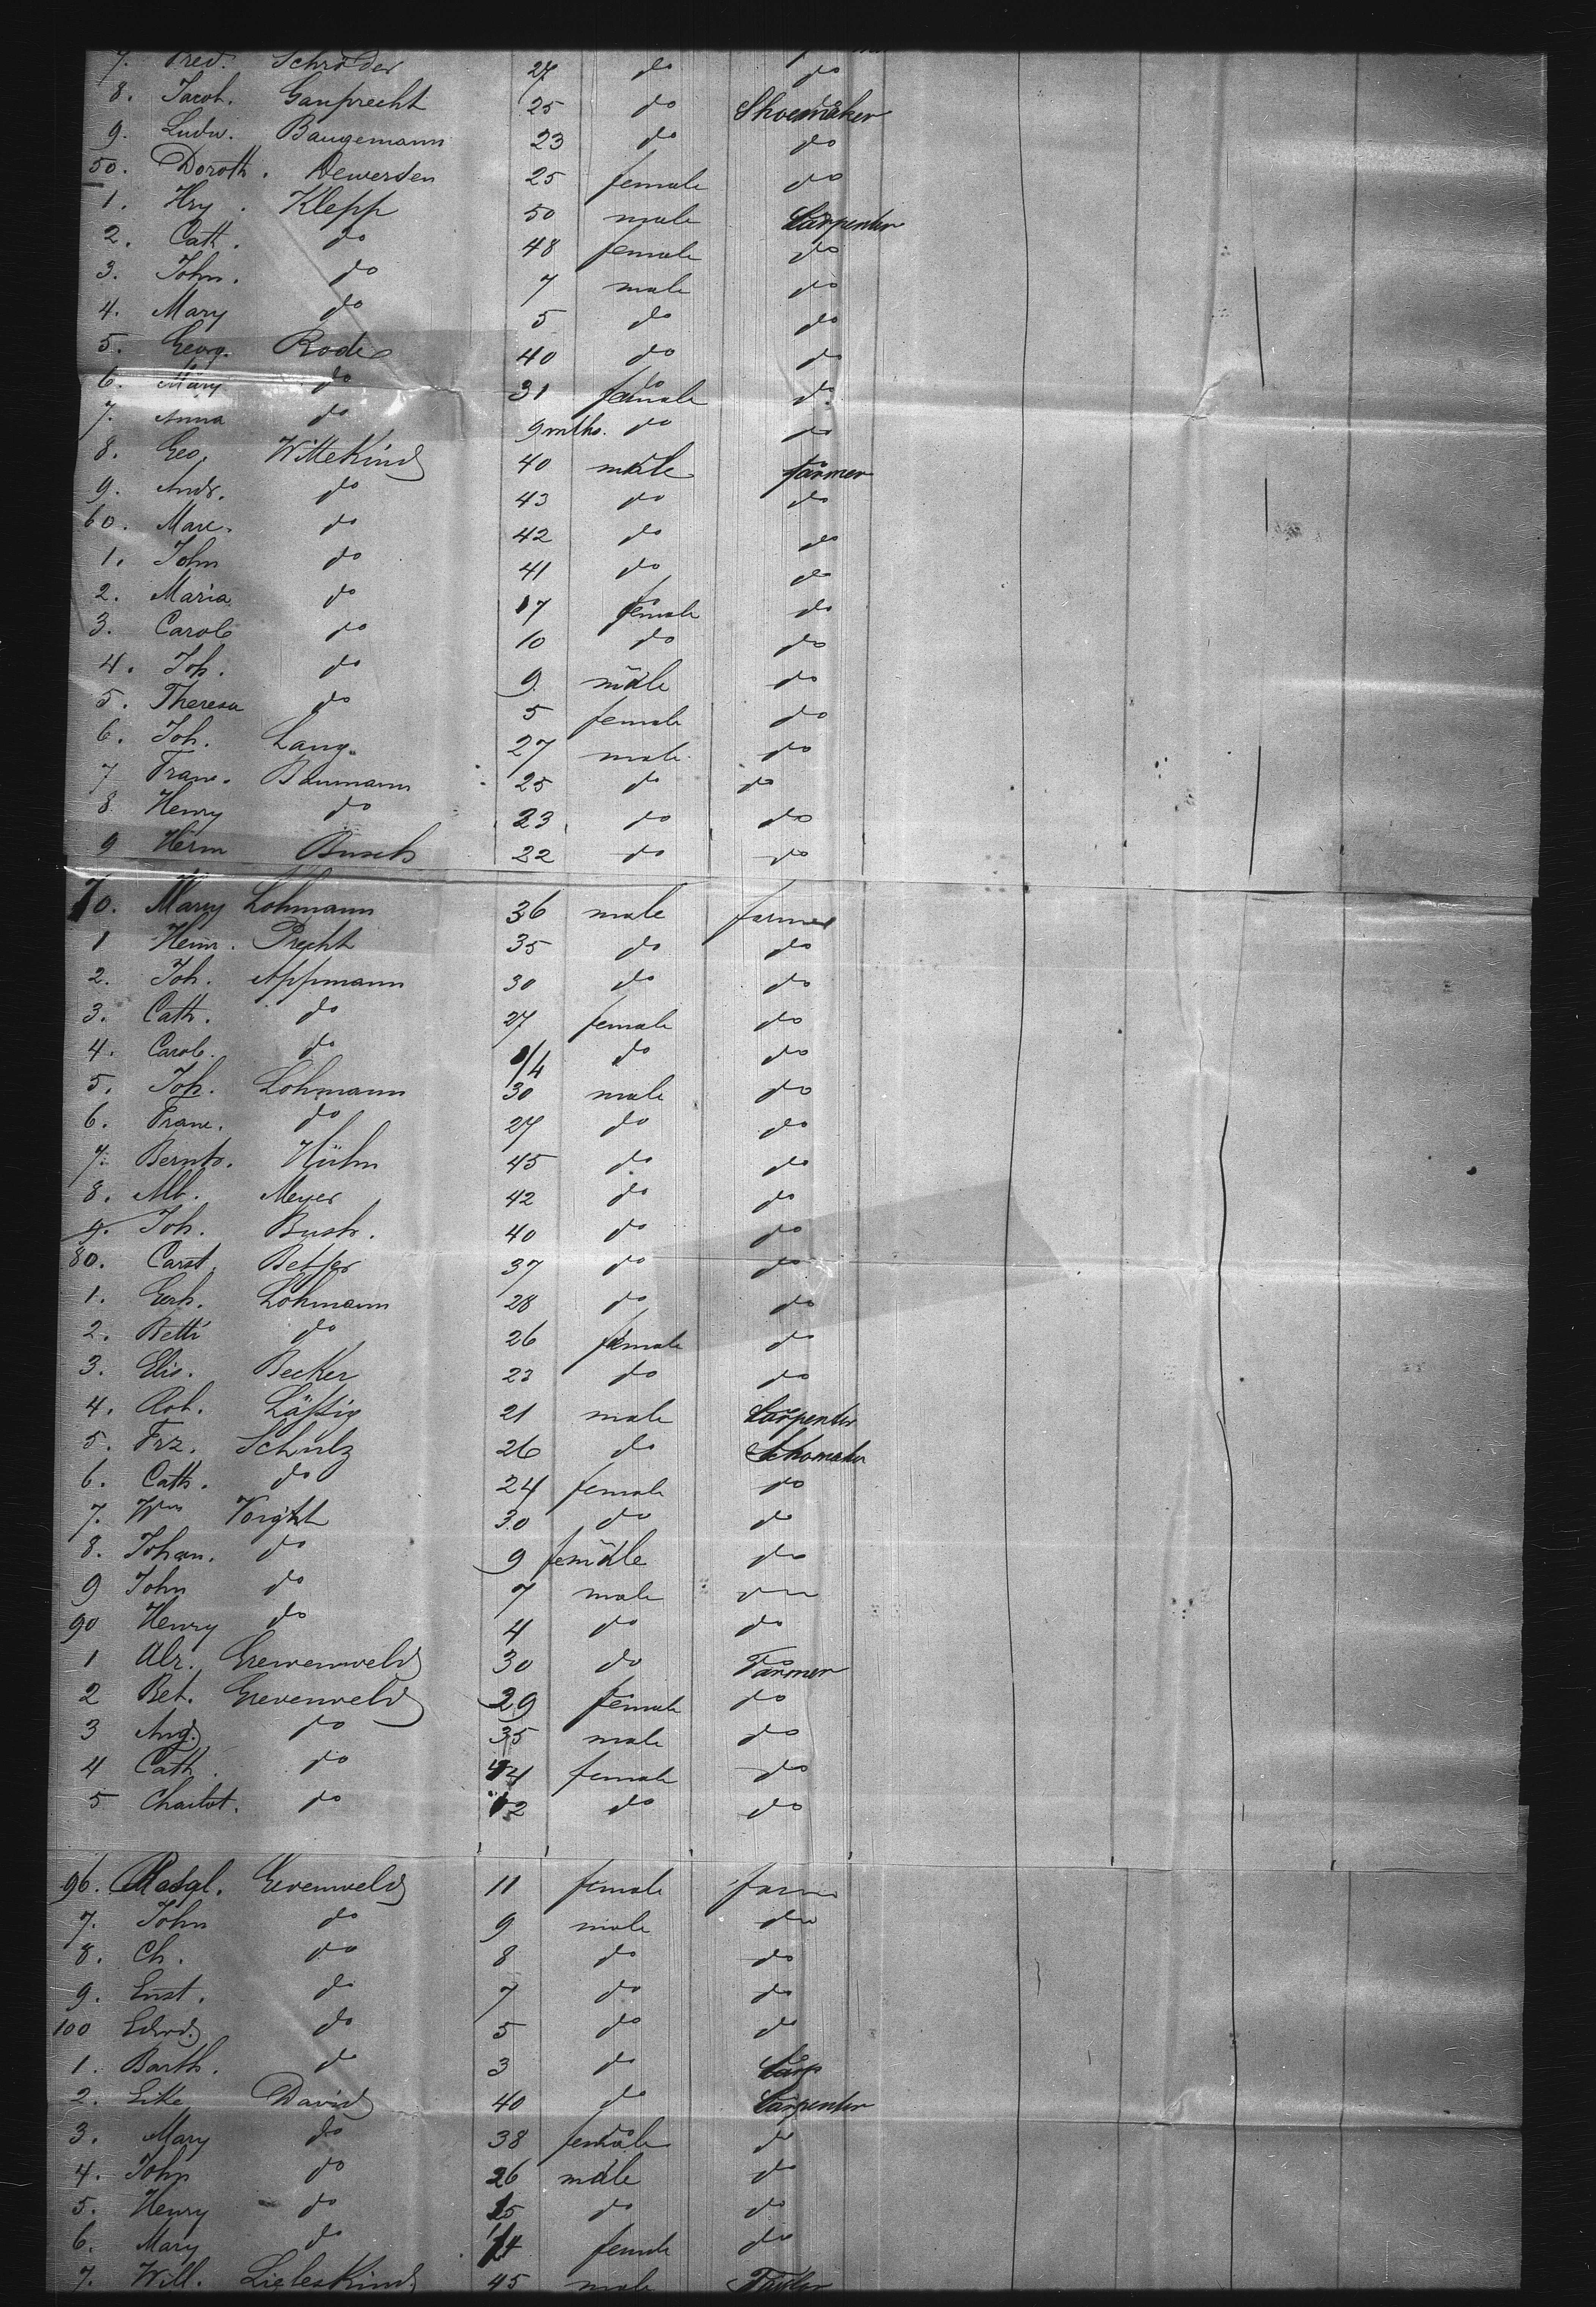 7. Fred. Schröder 27 do do
8. Jacob. Ganprecht 25 do Shoemaker
9. Ludw. Baugemann 23 do do
50. Doroth. Dewersen 25 female do
1. Hry. Klepp 50 male Carpenter
2. Cath. do 48 female do
3. John. do 7 male do
4. Mary do 5 do do
5. Georg. Rode 40 do do
6. Mary do 31 female do
7. Anna do 9 mths. do do
8. Geo. WitteKind 40 male farmer
9. Andr. do 43 do do
60. Marc. do 42 do do
1. John do 41 do do
2. Maria do 17 female do
3. Carol do 10 do do
4. Joh. do 9 male do
5. Theresa do 5 female do
6. Joh. Lang. 27 male do
7 Franc. Baumann 25 do do
8 Henry do 23 do do
9 Herm Busch 22 do do
70. Mary Lohmann 36 male farmer
1 Heinr. Precht 35 do do
2. Joh. Appmann 30 do do
3. Cath. do 27 female do
4. Carol. do /4 do do
5. Joh. Lohmann 30 male do
6. Franc. do 27 do do
7. Bernh. Hühn 45 do do
8. Alb. Meyer 42 do do
9. Joh. Bush. 40 do do
80. Carst. Betjer 37 do do
1. Gerh. Lohmann 28 do do
2. Betti do 26 female do
3. Elis. Becker 23 do do
4. Rob. Läßig 21 male Carpenter
5. Frz. Schulz 26 do Shomaker
6. Cath. do 24 female do
7. Wm Voight 30 do do
8. Johan. do 9 female do
9 John do 7 male do
90 Henry do 4 do do
1 Alr. Grevenweld 30 do Farmer
2 Bet. Grevenweld 29 female do
3 Aug. do 35 male do
4 Cath. do 44 female do
5 Charlot. do 12 do do
96. Magl. Grevenweld 11 female farm
7. John do 9 male do
8. Ch. do 8 do do
9. Ernst. do 7 do do
100 Edwd. do 5 do do
1. Barth. do 3 do Carp
2. Eike David 40 do Carpenter
3. Mary do 38 female do
4. John do 26 male do
5. Henry do 15 do do
6. Mary do 14 female do
7. Will. LieblesKind. 45 male Tailor